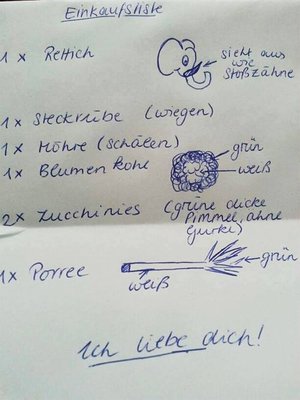 Einkaufsliste
1x Rettich
sieht aus
wie
Stoßzähne
1x Steckrübe (wiegen)
1x Möhre (schälen)
1x Blumenkohl
grün
weiß
2x Zucchinies (grüne dicke
Pimmel, ohne
Gurke)
1x Porree
weiß
grün
Ich liebe dich!